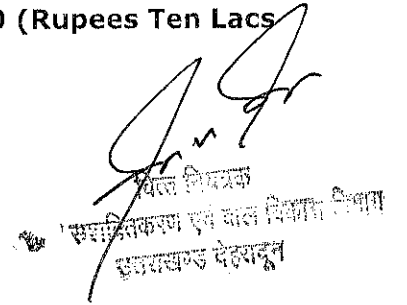 0 (Rupees Ten Lacs
वित्त नियंत्रक
सशक्तिकरण एवं बाल विकास विभाग
उत्तराखण्ड देहरादून